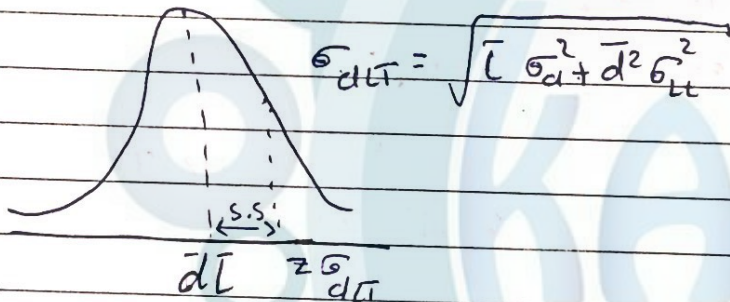 σ_dLT = √(L̄ σ_d² + d̄² σ_Lt²)
S.S
d̄L̄ z σ_dLT